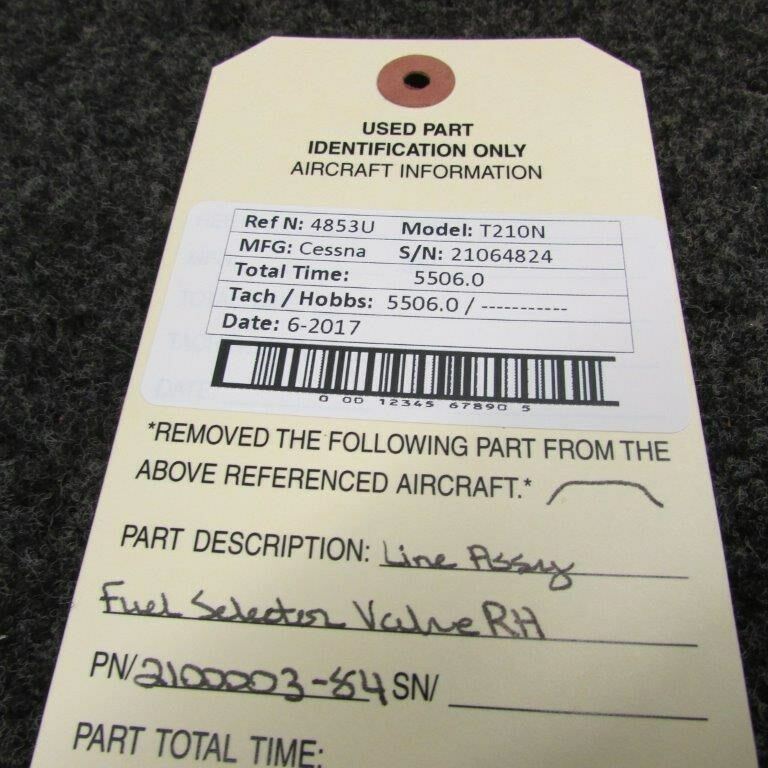 USED PART
IDENTIFICATION ONLY
AIRCRAFT INFORMATION
Ref N: 4853U Model: T210N
MFG: Cessna S/N: 21064824
Total Time: 5506.0
Tach / Hobbs: 5506.0 / -----------
Date: 6-2017
0 00 12345 67890 5
*REMOVED THE FOLLOWING PART FROM THE
ABOVE REFERENCED AIRCRAFT.*
PART DESCRIPTION: Line Assy
Fuel Selector Valve RH
PN/ 2100003-84 SN/
PART TOTAL TIME: